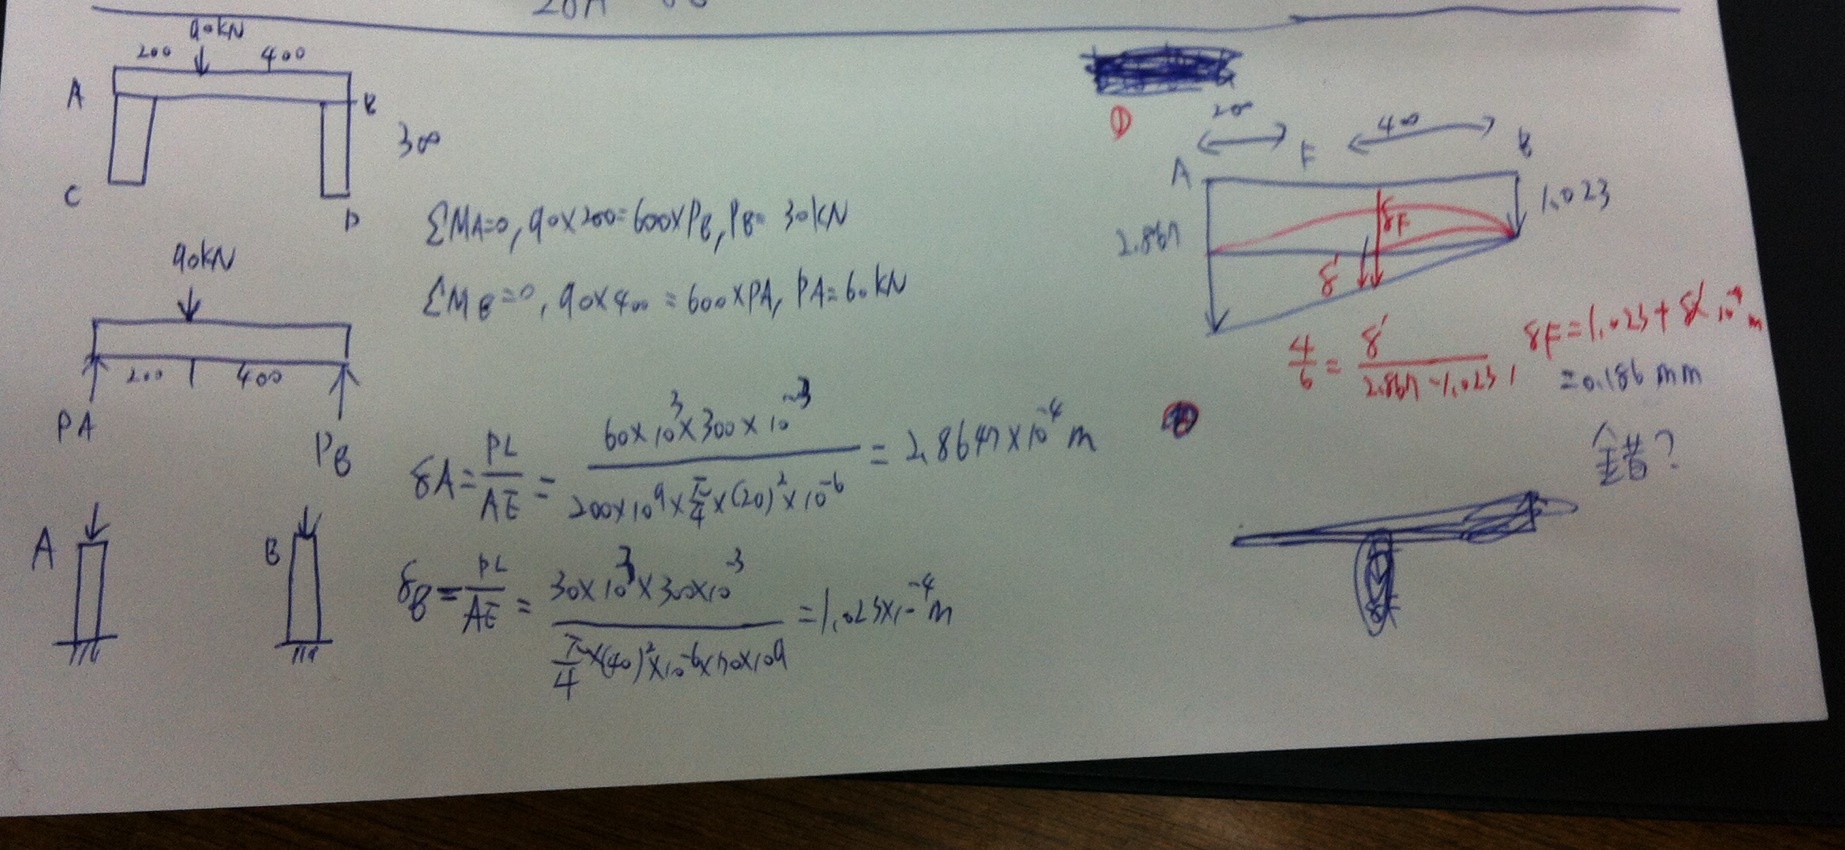 90kN
200 400
A B
300
C D
ΣMA=0, 90×200=600×PB, PB= 30kN
ΣMB=0, 90×400=600×PA, PA=60kN
90kN
200 400
PA PB
δA=PL/AE=60×10³×300×10⁻³/200×10⁹×π/4×(20)²×10⁻⁶=2.8647×10⁻⁴m
A B
δB=PL/AE=30×10³×300×10⁻³/π/4×(40)²×10⁻⁶×70×10⁹=1.023×10⁻⁴m
①
200 400
A F B
2.867 1.023
δF
δ'
4/6=δ'/2.867-1.023, δF=1.023+δ'
=0.186 mm
全错?